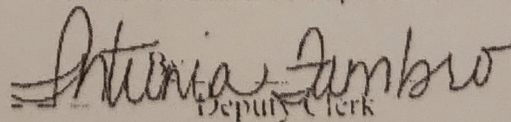 Antonia Fambro
Deputy Clerk